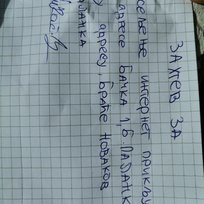 ЗАХТЕВ ЗА
СЕЉЕЊЕ ИНТЕРНЕТ ПРИКЉУ
АДРЕСЕ БАЧКА 1, Б. ПАЛАНК
АДРЕСУ, БРАЋЕ НОВАКОВ
ЛАНКА